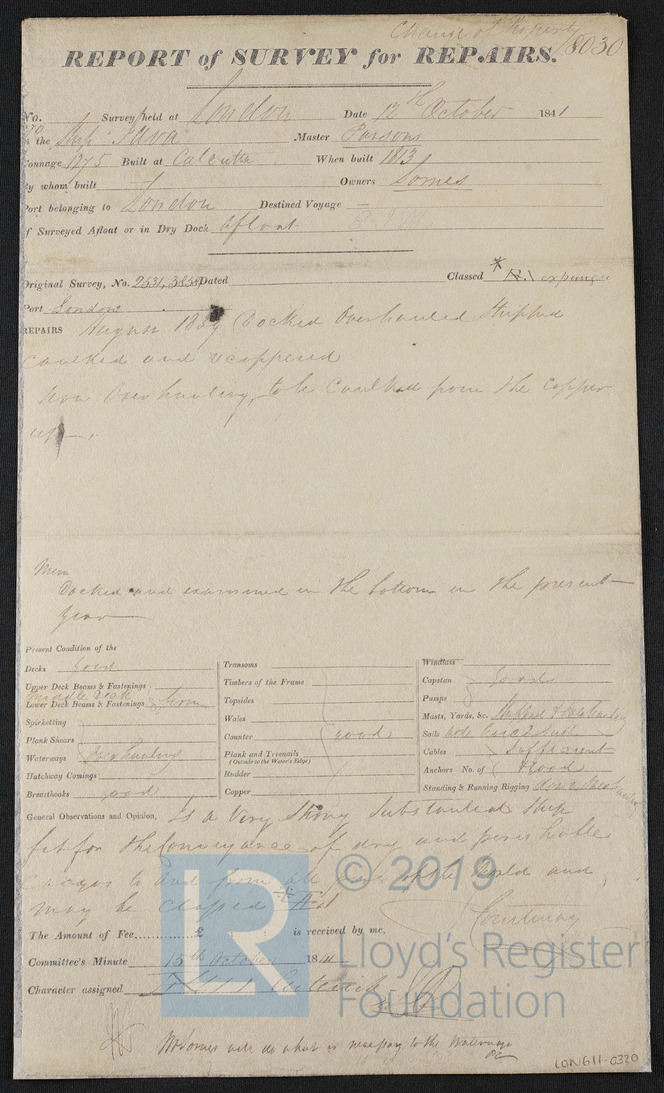 Change of Property
8030
REPORT of SURVEY for REPAIRS.
No. Survey held at London Date 12th October 1841
the Ship Java Master Parsons
Tonnage 1275 Built at Calcutta When built 1813
By whom built Owners Somes
Port belonging to London Destined Voyage —
If Surveyed Afloat or in Dry Dock afloat
Original Survey, No. 2531, 3858 Dated Classed
Port London
REPAIRS August 1839 Docked Overhauled Stripped
caulked and recoppered
Now Overhauling, to be Caulked from the Copper
up
Mem
Docked and examined in the bottom in the present
year
Present Condition of the
Decks Good
Upper Deck Beams & Fastenings
Middle Deck
Lower Deck Beams & Fastenings
Spirketting
Plank Shears
Waterways Overhauling
Hatchway Comings
Breasthooks good
Transoms
Timbers of the Frame
Topsides
Wales
Counter good
Plank and Treenails
(Outside to the Water's Edge)
Rudder
Copper
Windlass
Capstan Good
Pumps
Masts, Yards, &c.
Sails
Cables Sufficient
Anchors No. of & Good
Standing & Running Rigging
General Observations and Opinion, Is a Very Strong Substantial Ship
fit for the Conveyance of dry and perishable
Cargos to and from all parts of the World and
may be Classed
Courtenay
The Amount of Fee............£ is received by me,
Committee's Minute 15th October 1841
Character assigned
Mr Somes will do what is necessary to the Waterways
LON611-0320
© 2019
LR
Lloyd's Register
Foundation